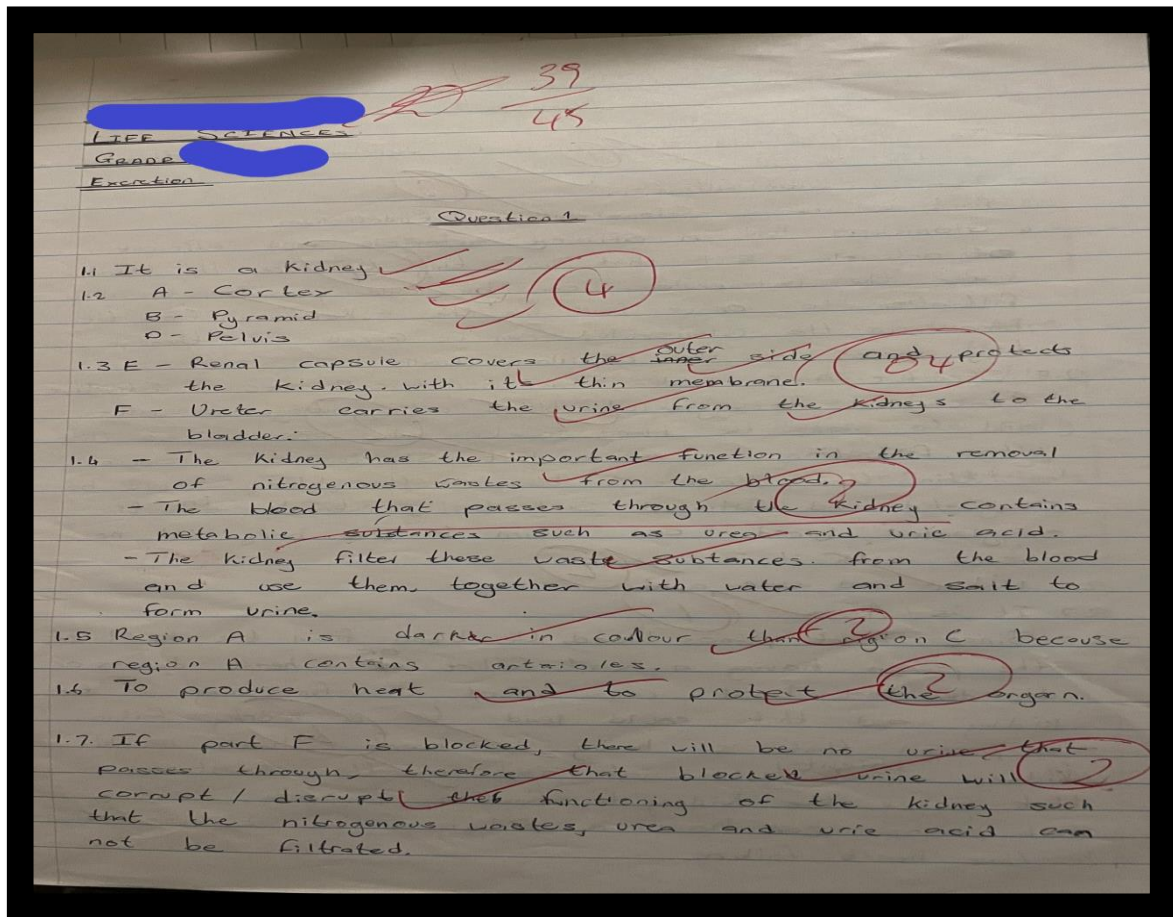 39
45
LIFE SCIENCES
GRADE
Excretion
Question 1
1.1 It is a kidney
1.2 A - Cortex
B - Pyramid
D - Pelvis
4
1.3 E - Renal capsule covers the outer inner side and protects
the kidney. with it thin membrane.
4
F - Ureter carries the urine from the kidneys to the
bladder.
1.4 - The kidney has the important function in the removal
of nitrogenous wastes from the blood.
2
- The blood that passes through the kidney contains
metabolic substances such as urea and uric acid.
- The kidney filter these waste subtances. from the blood
and use them, together with water and salt to
form urine.
1.5 Region A is darker in colour than region C because
2
region A contains artrioles.
1.6 To produce heat and to protect the organ.
2
1.7. If part F is blocked, there will be no urine that
passes through, therefore that blocked urine will
2
corrupt / disrupt the functioning of the kidney such
that the nitrogenous wastes, urea and uric acid can
not be filtrated.